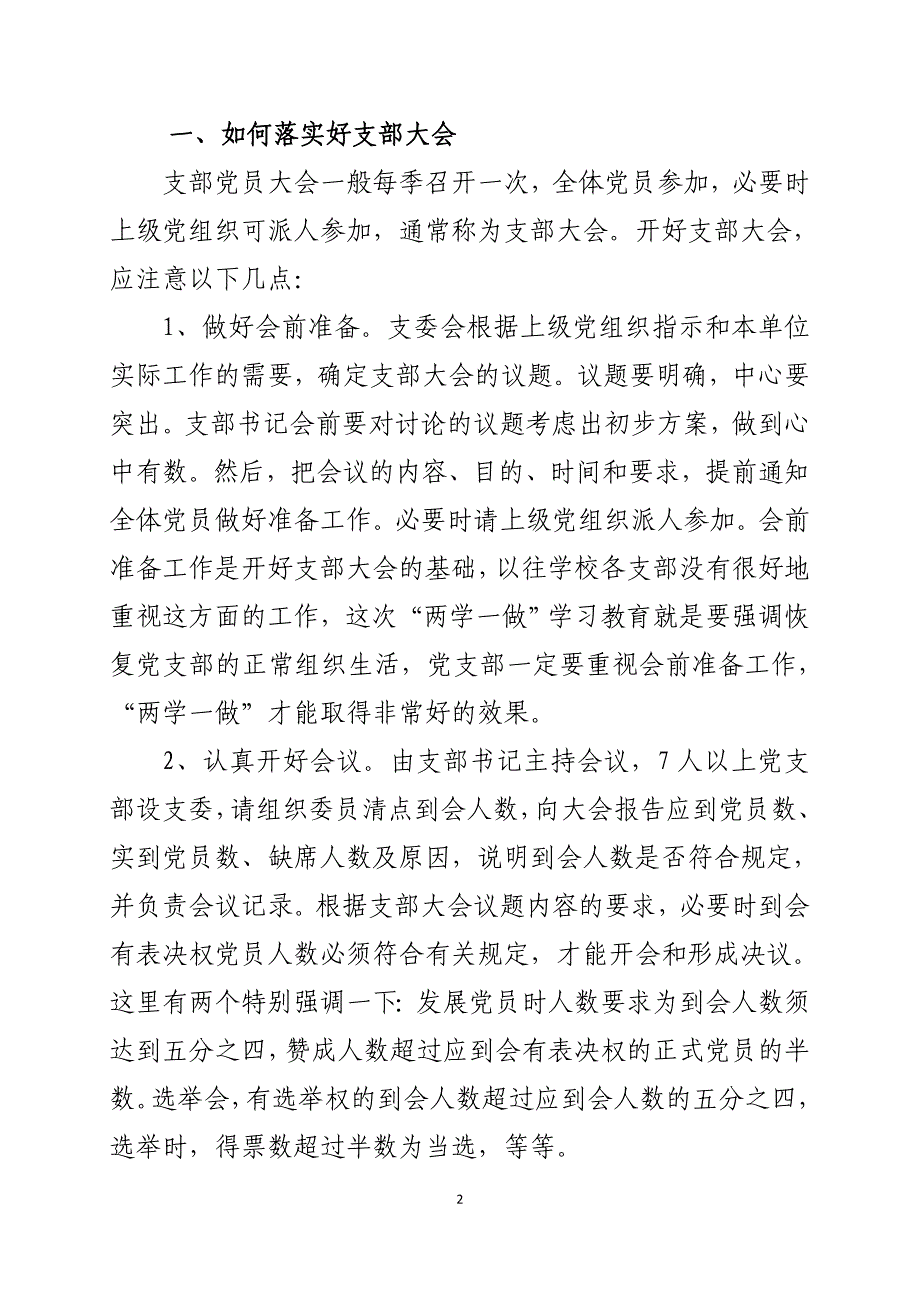 一、如何落实好支部大会
支部党员大会一般每季召开一次，全体党员参加，必要时
上级党组织可派人参加，通常称为支部大会。开好支部大会，
应注意以下几点：
1、做好会前准备。支委会根据上级党组织指示和本单位
实际工作的需要，确定支部大会的议题。议题要明确，中心要
突出。支部书记会前要对讨论的议题考虑出初步方案，做到心
中有数。然后，把会议的内容、目的、时间和要求，提前通知
全体党员做好准备工作。必要时请上级党组织派人参加。会前
准备工作是开好支部大会的基础，以往学校各支部没有很好地
重视这方面的工作，这次“两学一做”学习教育就是要强调恢
复党支部的正常组织生活，党支部一定要重视会前准备工作，
“两学一做”才能取得非常好的效果。
2、认真开好会议。由支部书记主持会议，7 人以上党支
部设支委，请组织委员清点到会人数，向大会报告应到党员数、
实到党员数、缺席人数及原因，说明到会人数是否符合规定，
并负责会议记录。根据支部大会议题内容的要求，必要时到会
有表决权党员人数必须符合有关规定，才能开会和形成决议。
这里有两个特别强调一下：发展党员时人数要求为到会人数须
达到五分之四，赞成人数超过应到会有表决权的正式党员的半
数。选举会，有选举权的到会人数超过应到会人数的五分之四，
选举时，得票数超过半数为当选，等等。
2